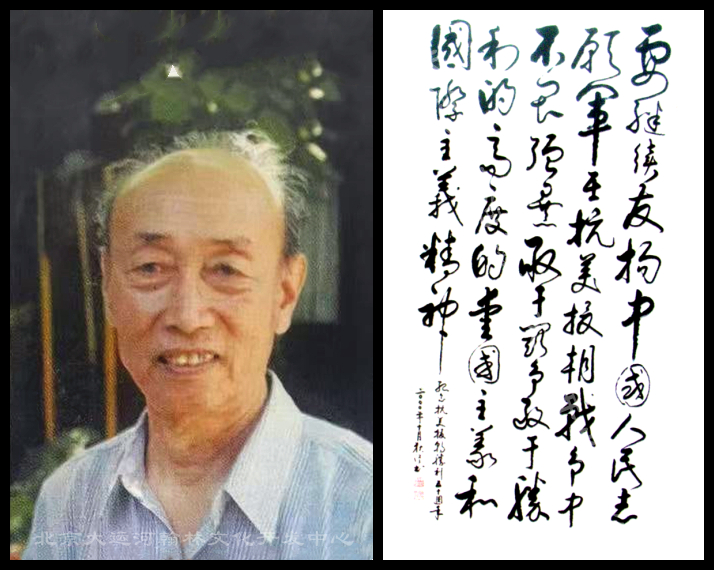 要继续发扬中国人民志
愿军在抗美援朝战争中
不畏强暴敢于斗争敢于胜
利的高度的爱国主义和
國際主義精神
纪念抗美援朝胜利五十周年
二〇〇〇年十月
北京大运河翰林文化开发中心